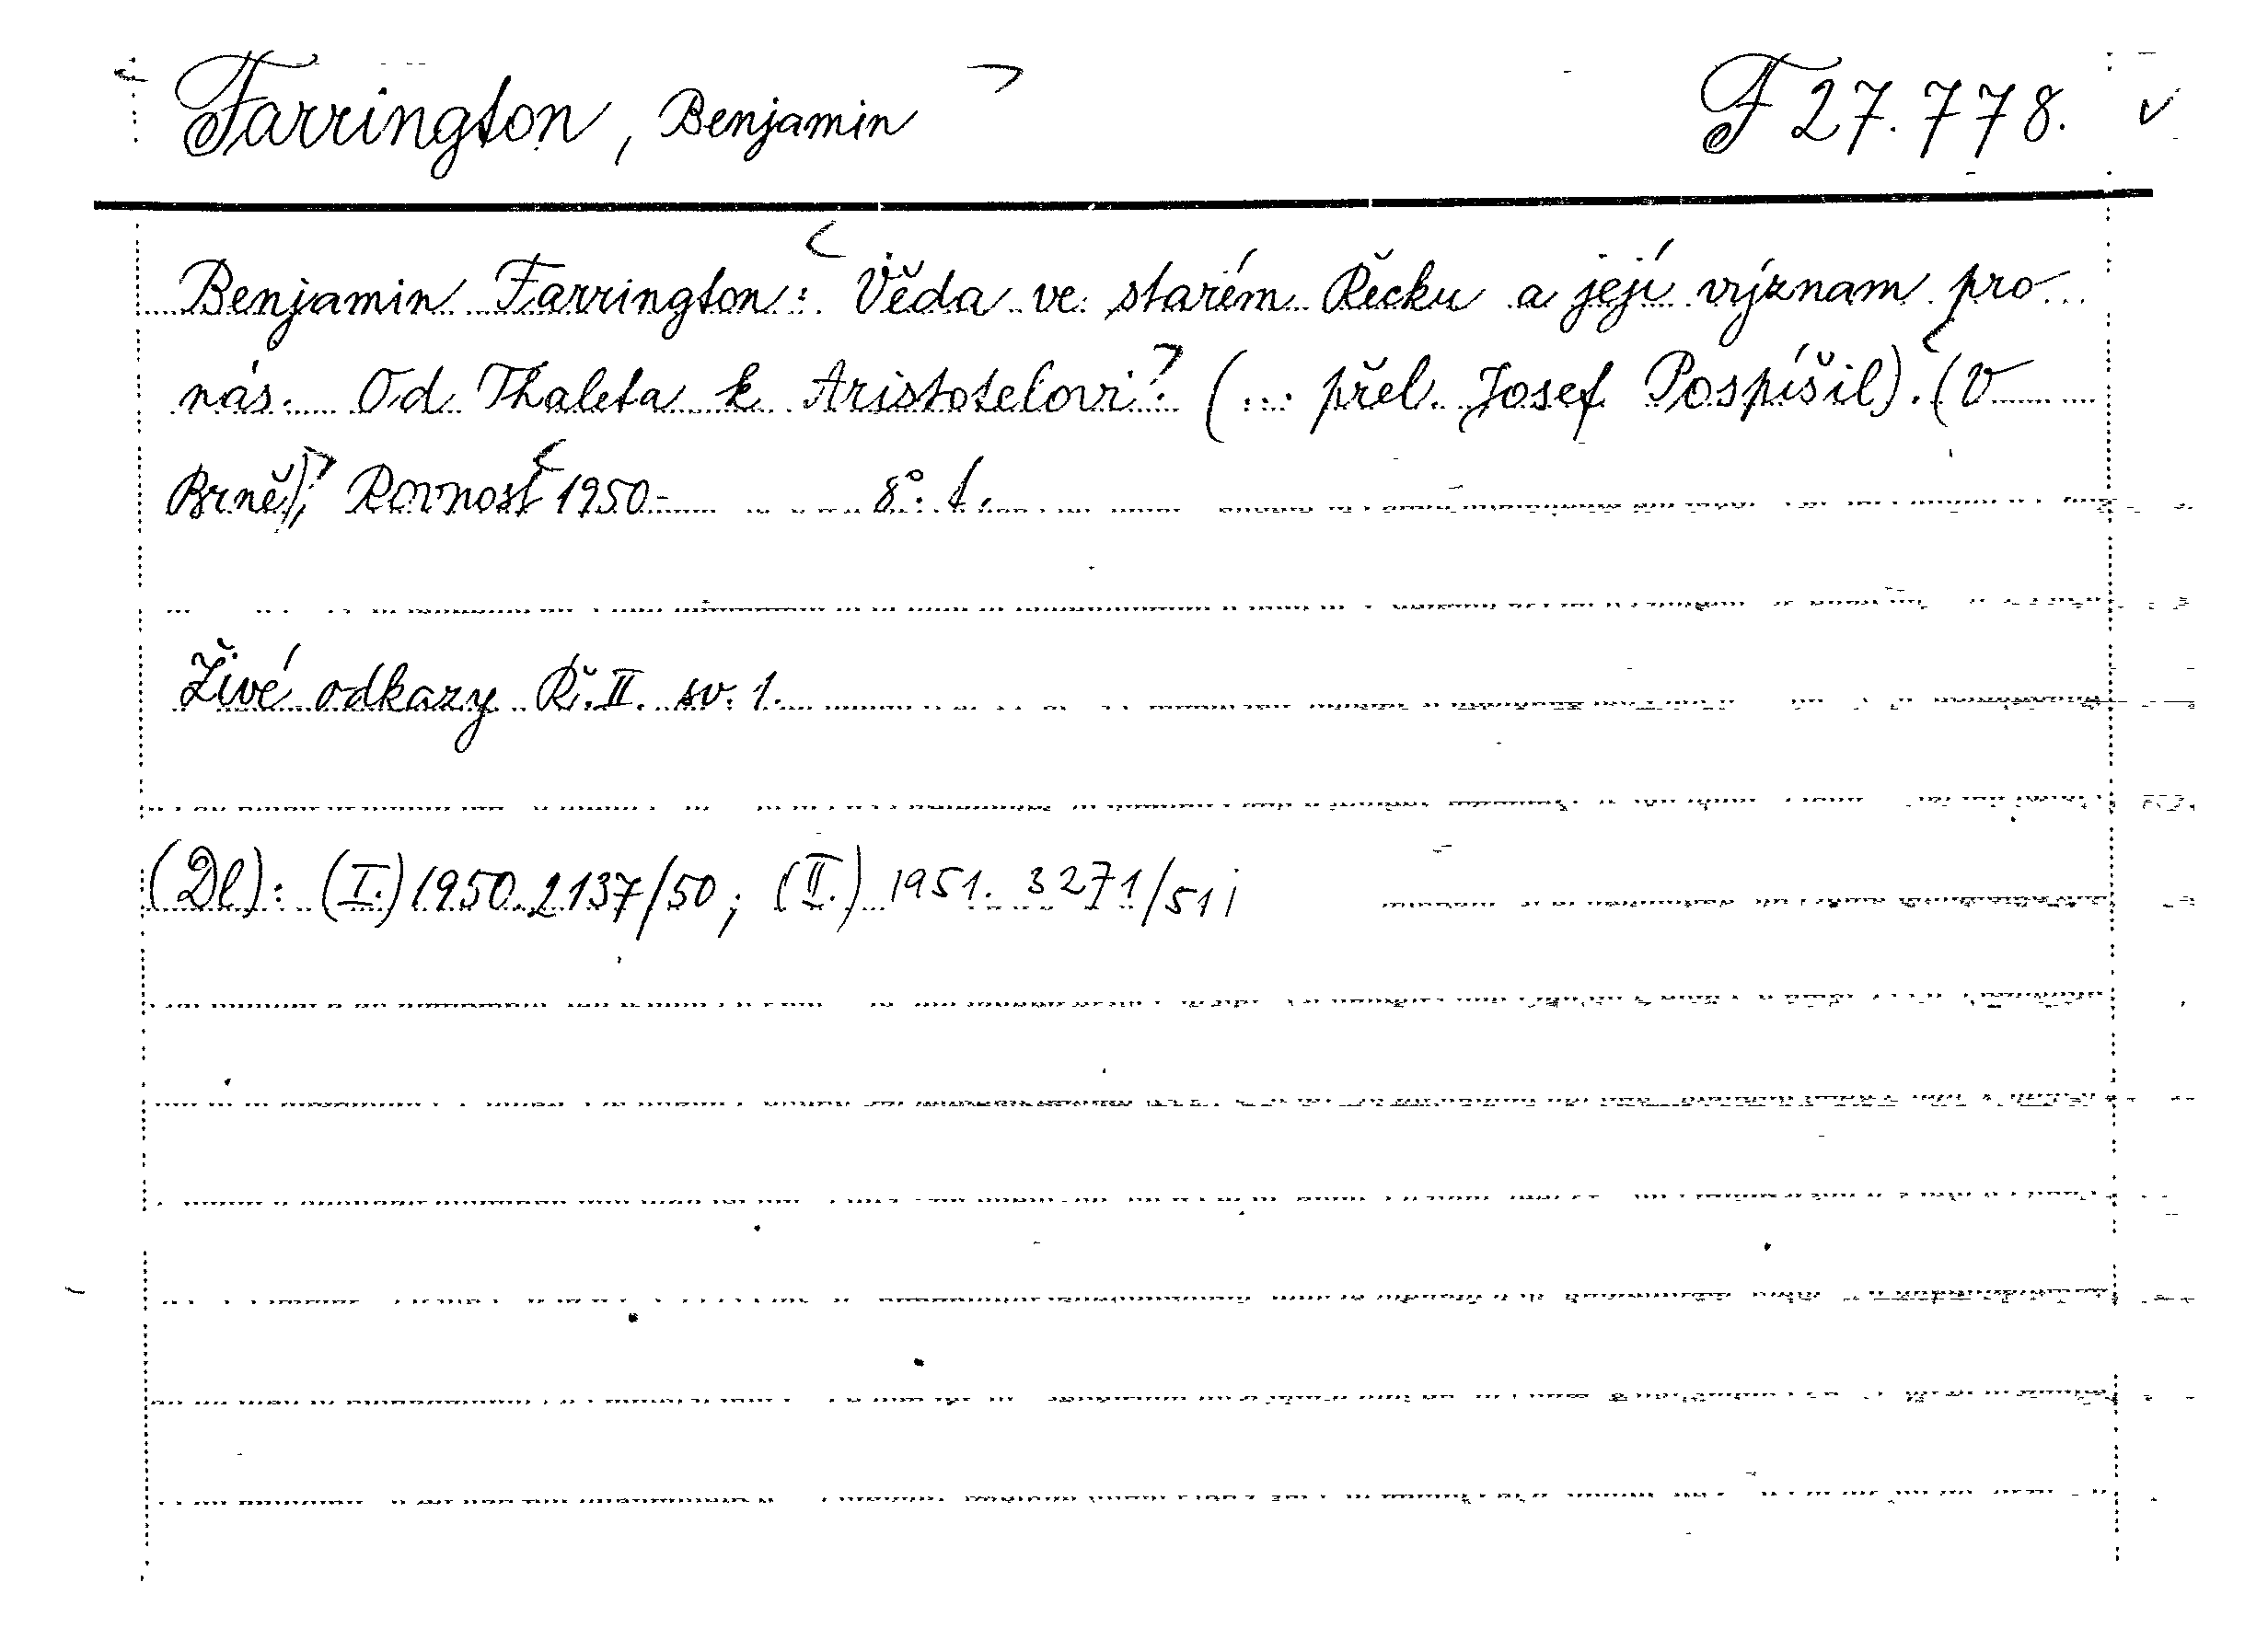 Farrington, Benjamin F 27.778.
Benjamin Farrington: Věda ve starém Řecku a její význam pro
nás. Od Thaleta k Aristotelovi. (... přel. Josef Pospíšil). (V
Brně), Rovnost 1950- 8°. t.
Živé odkazy Ř. II. sv. 1.
(Dl): (I.) 1950.2137/50; (II.) 1951. 3271/51;